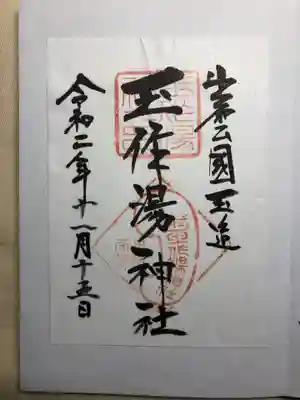 出雲國玉造
玉作湯神社
令和二年十一月十五日